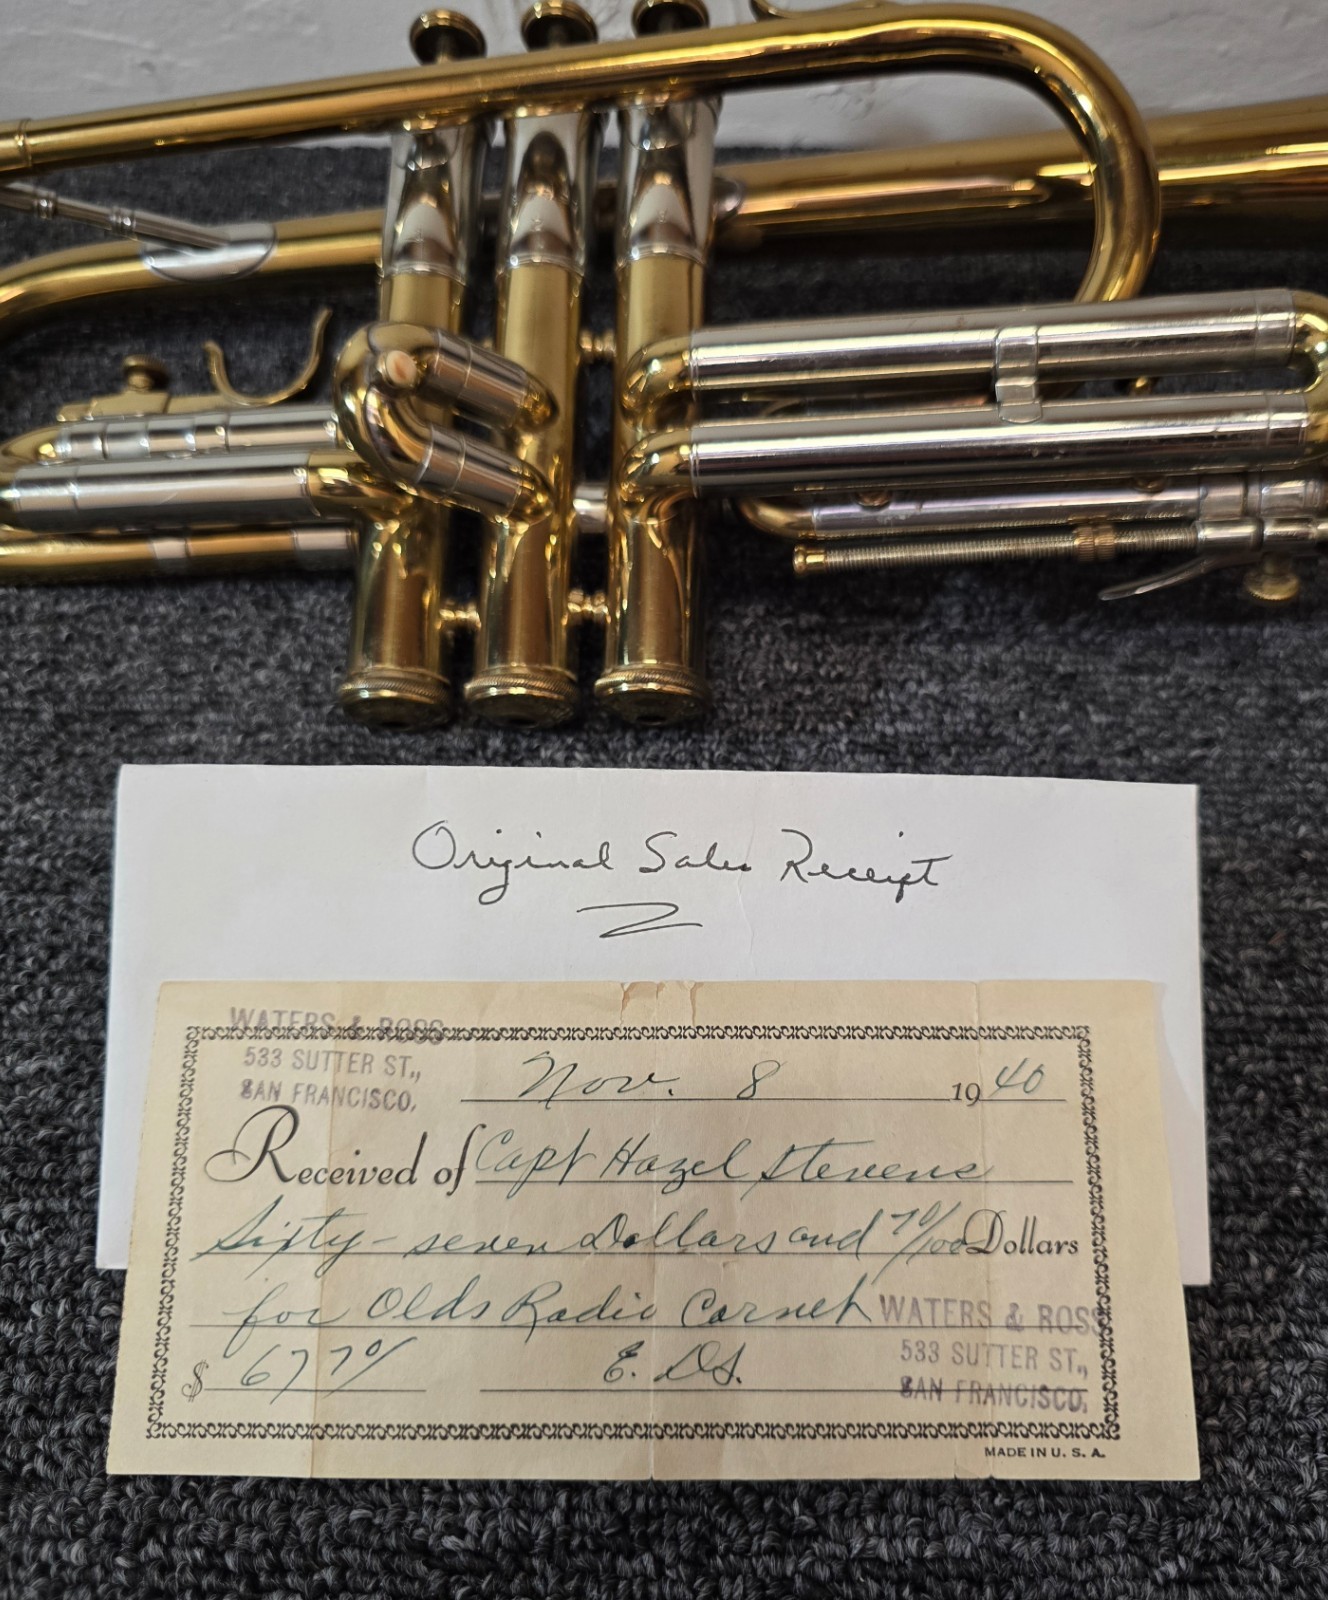 Original Sales Receipt
WATERS & ROSS
533 SUTTER ST.,
SAN FRANCISCO.
Nov. 8 1940
Received of Capt Hazel Stevens
Sixty-seven Dollars and 70/100 Dollars
for Olds Radio Cornet
WATERS & ROSS
533 SUTTER ST.,
SAN FRANCISCO.
$ 67 70/ E. DS.
MADE IN U. S. A.